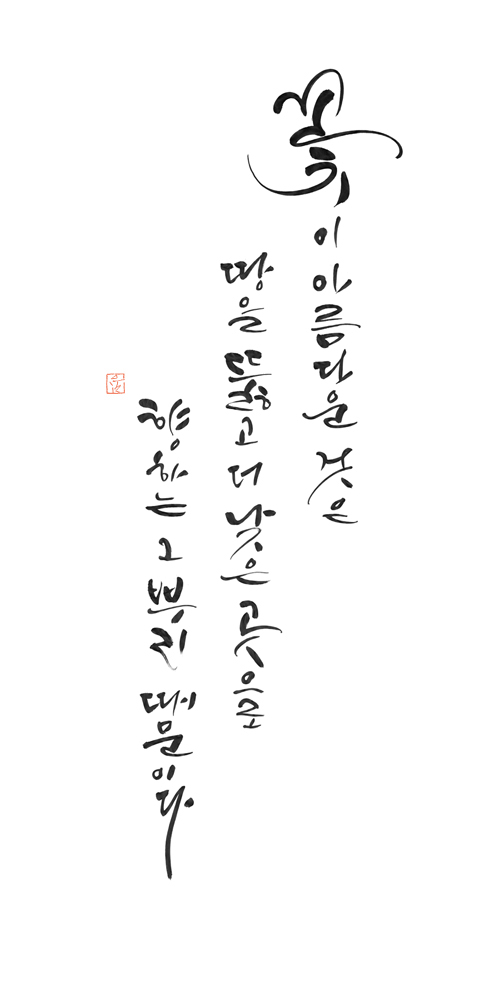 꽃이 아름다운 것은
땅을 뚫고 더 낮은 곳으로
향하는 그 뿌리 때문이다